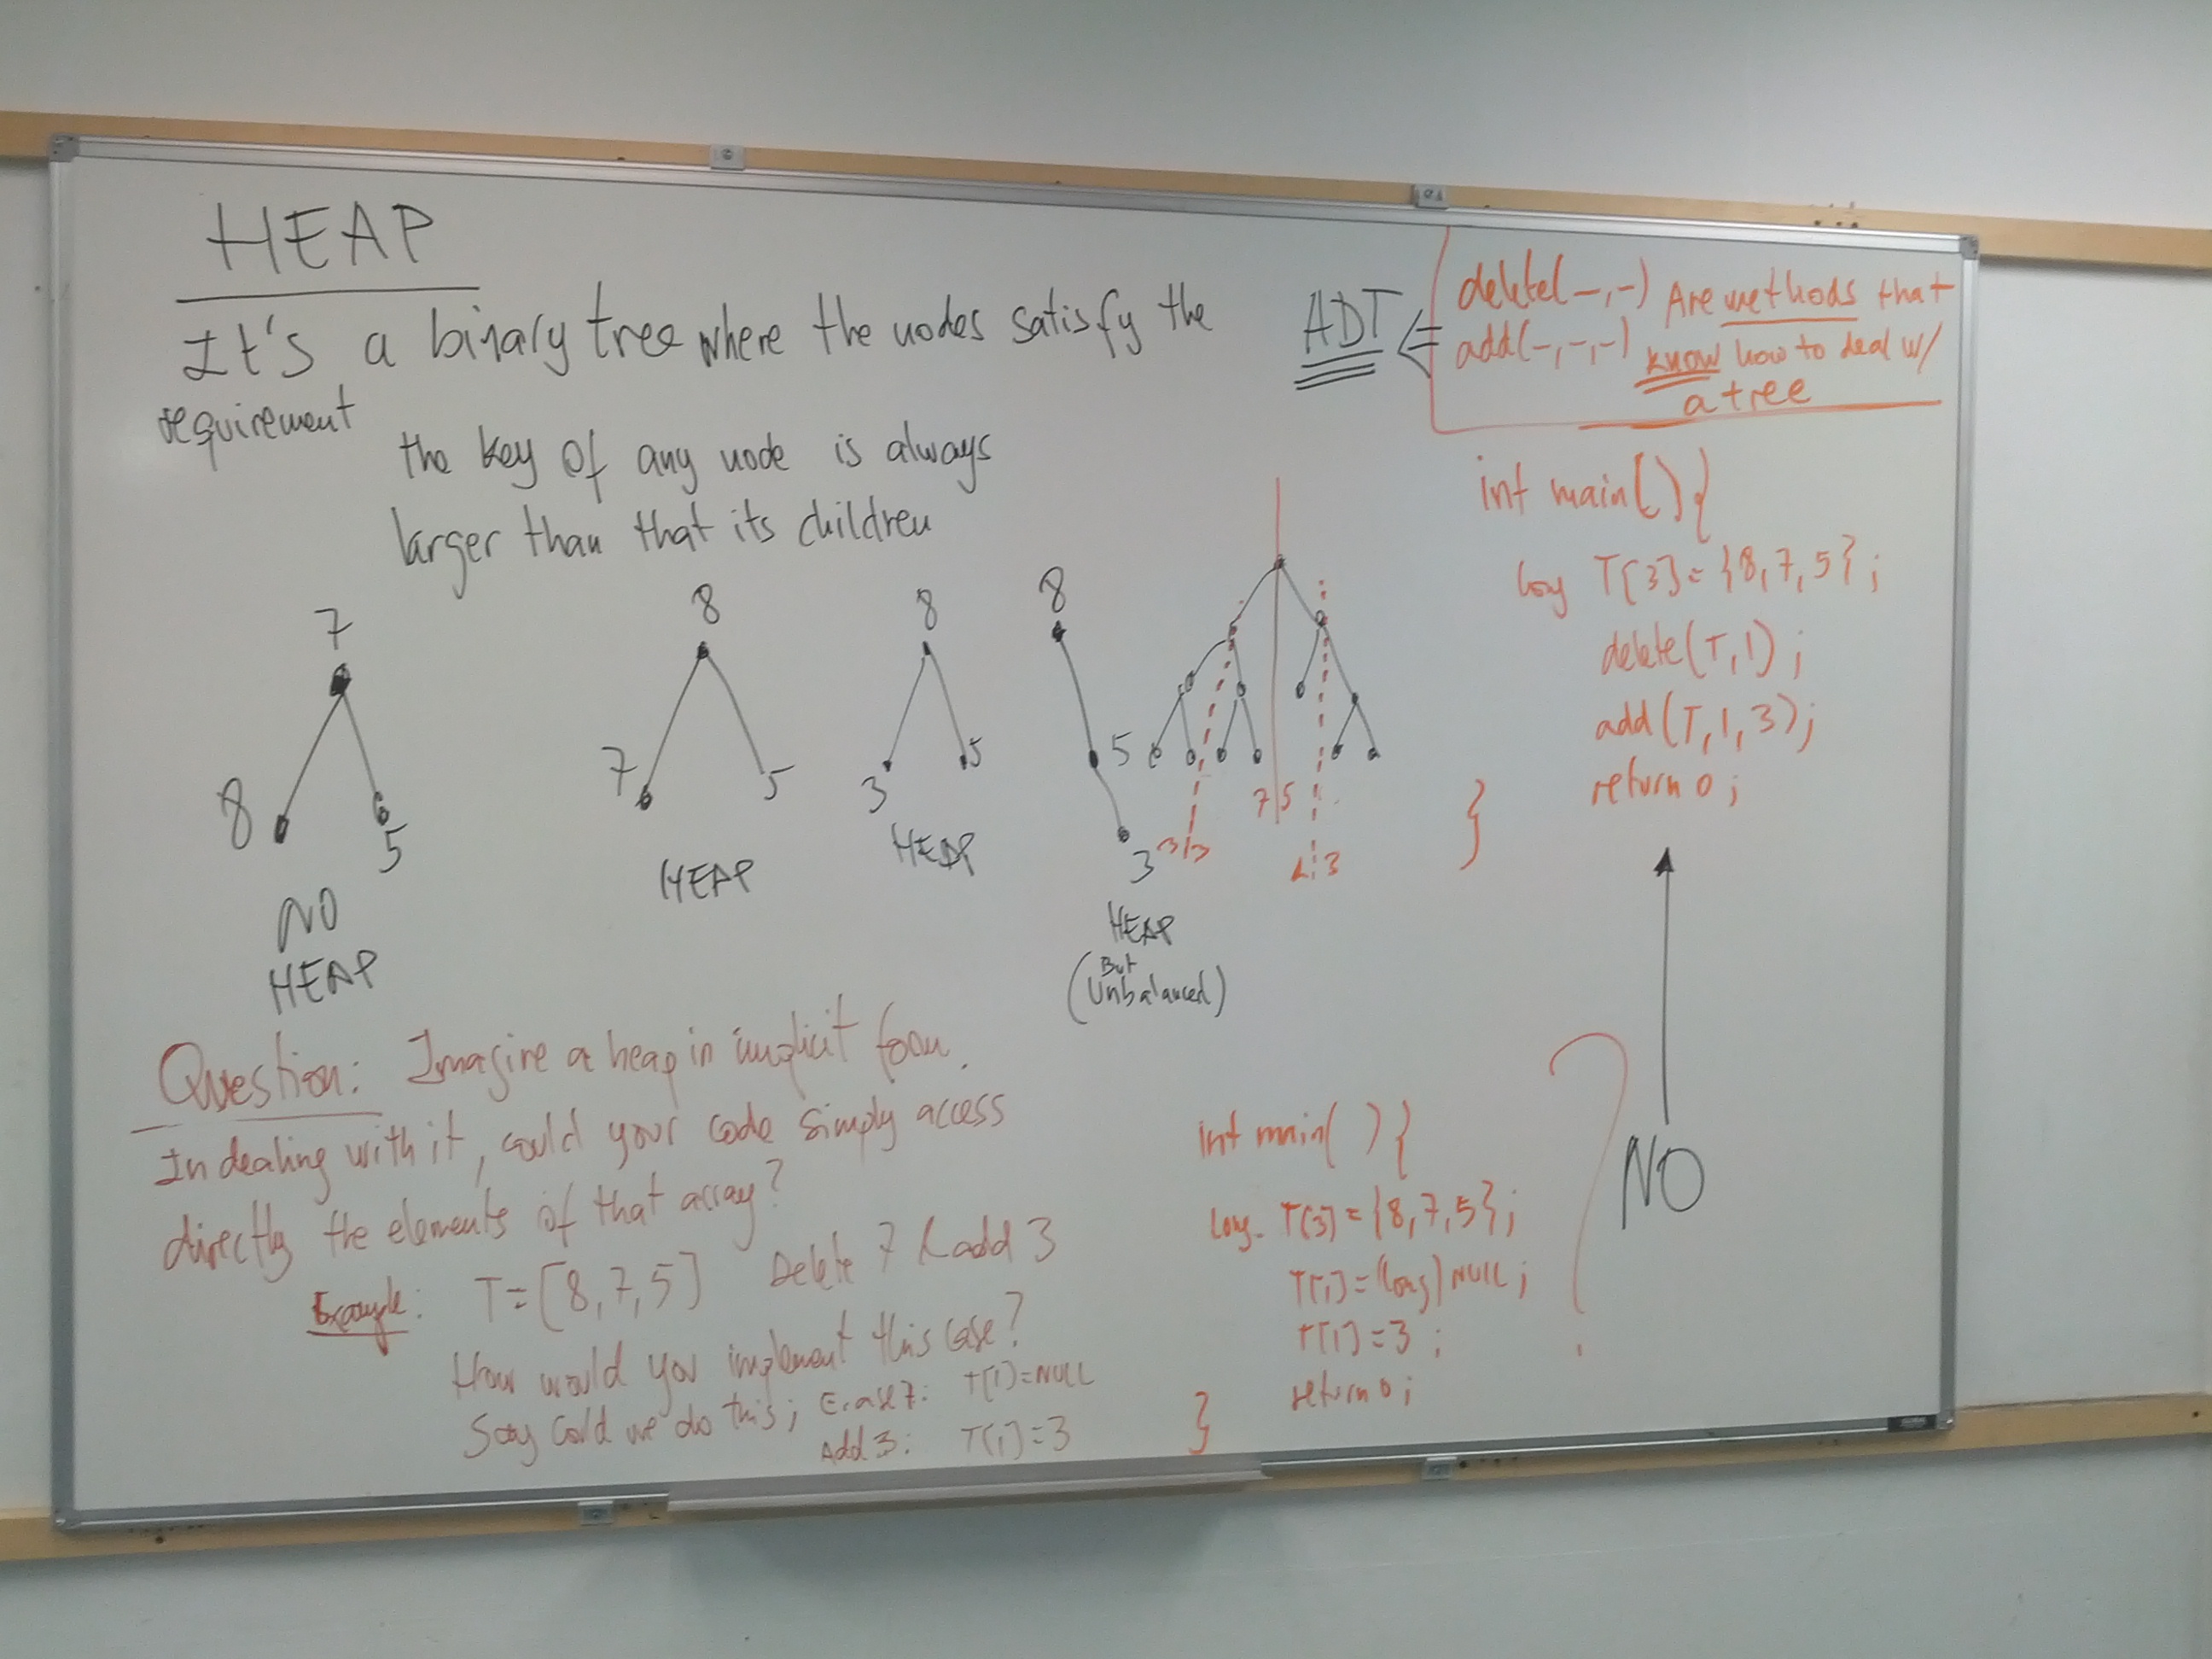 HEAP
It's a binary tree where the nodes satisfy the
requirement
the key of any node is always
larger than that its children
7
8
5
NO
HEAP
8
7
5
HEAP
8
3
5
HEAP
8
5
3
HEAP
(But
Unbalanced)
7|5
ADT <=
delete(-,-) Are methods that
add(-,-,-) know how to deal w/
a tree
int main(){
long T[3]={8,7,5};
delete(T,1);
add(T,1,3);
return 0;
}
NO
Question: Imagine a heap in implicit form.
In dealing with it, could your code simply access
directly the elements of that array?
Example: T=[8,7,5] Delete 7 & add 3
How would you implement this case?
Say could we do this; Erase 7: T[1]=NULL
Add 3: T[1]=3
int main( ){
long T[3]={8,7,5};
T[1]=(long)NULL;
T[1]=3;
return 0;
}
?